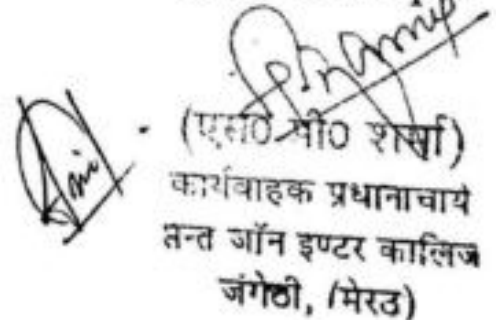 (एस0 पी0 शर्मा)
कार्यवाहक प्रधानाचार्य
सन्त जॉन इण्टर कालिज
जंगेठी, (मेरठ)